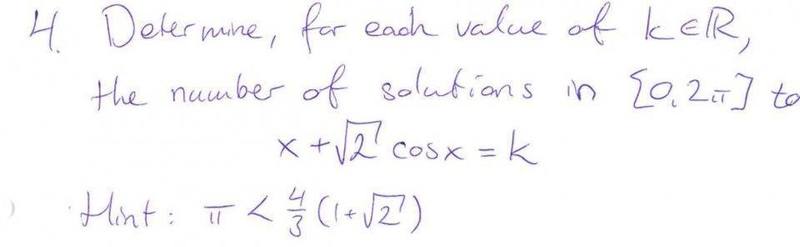 4. Determine, for each value of k∈ℝ,
the number of solutions in [0,2π] to
x+√2 cosx = k
Hint: π < 4/3 (1+√2)